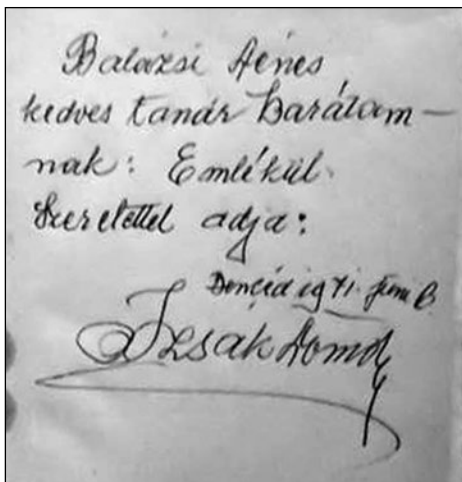 Balázsi Dénes
kedves tanár barátom-
nak: Emlékül
Szeretettel adja:
1971. Juni
Izsák Domok